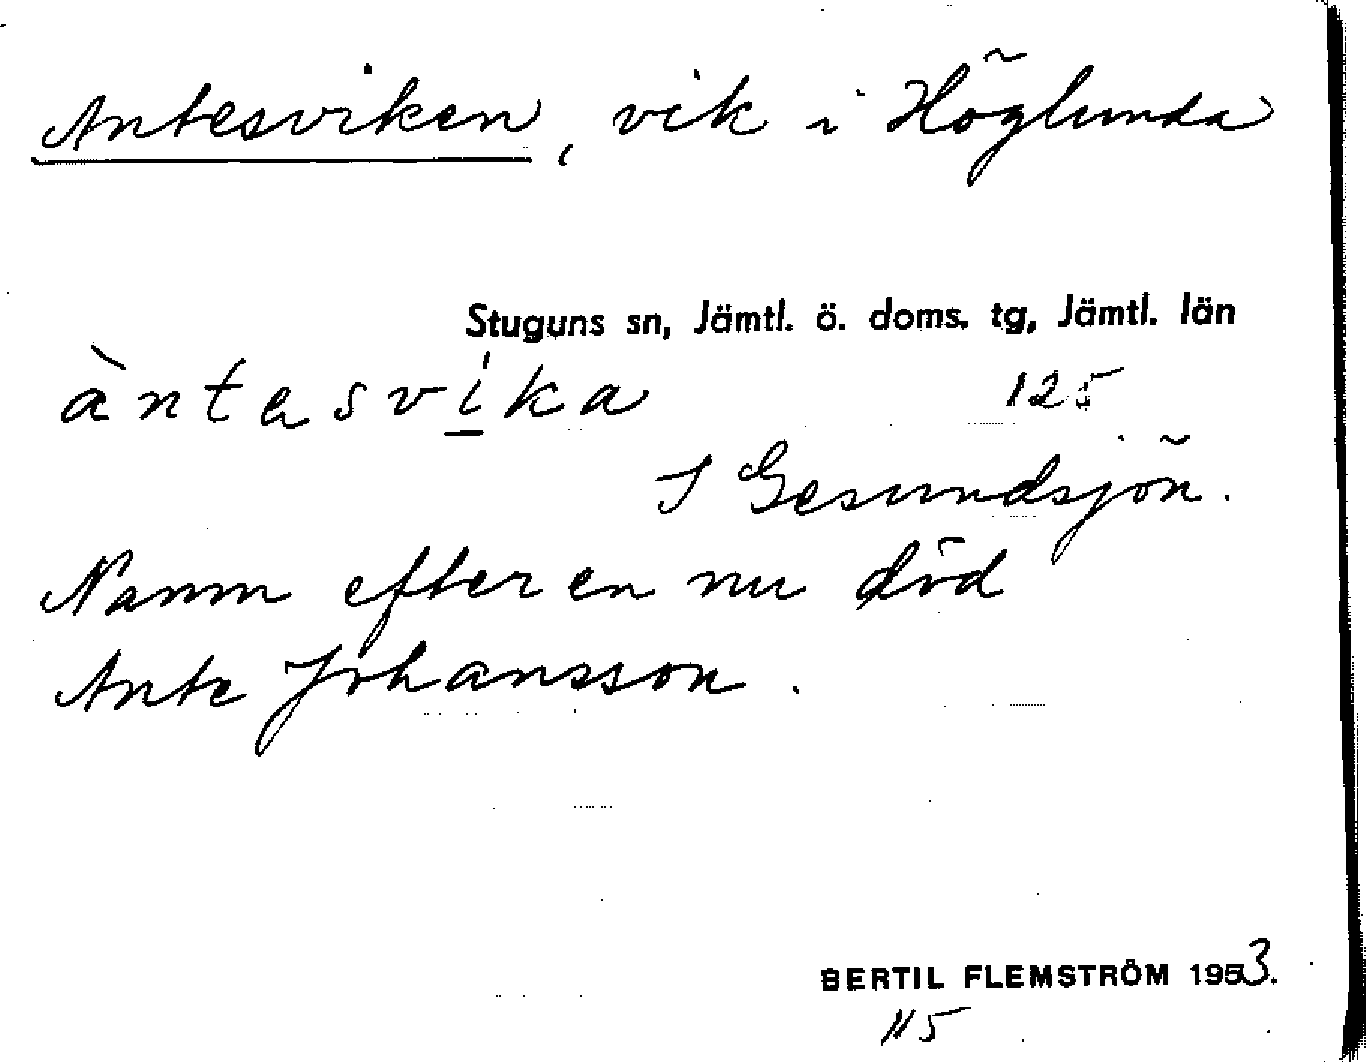 Antesviken, vik i Höglunda
Stuguns sn, Jämtl. ö. doms. tg, Jämtl. län
àntesvika 125
I Gesundsjön.
Namn efter en nu död
Ante Johansson.
BERTIL FLEMSTRÖM 1953.
115